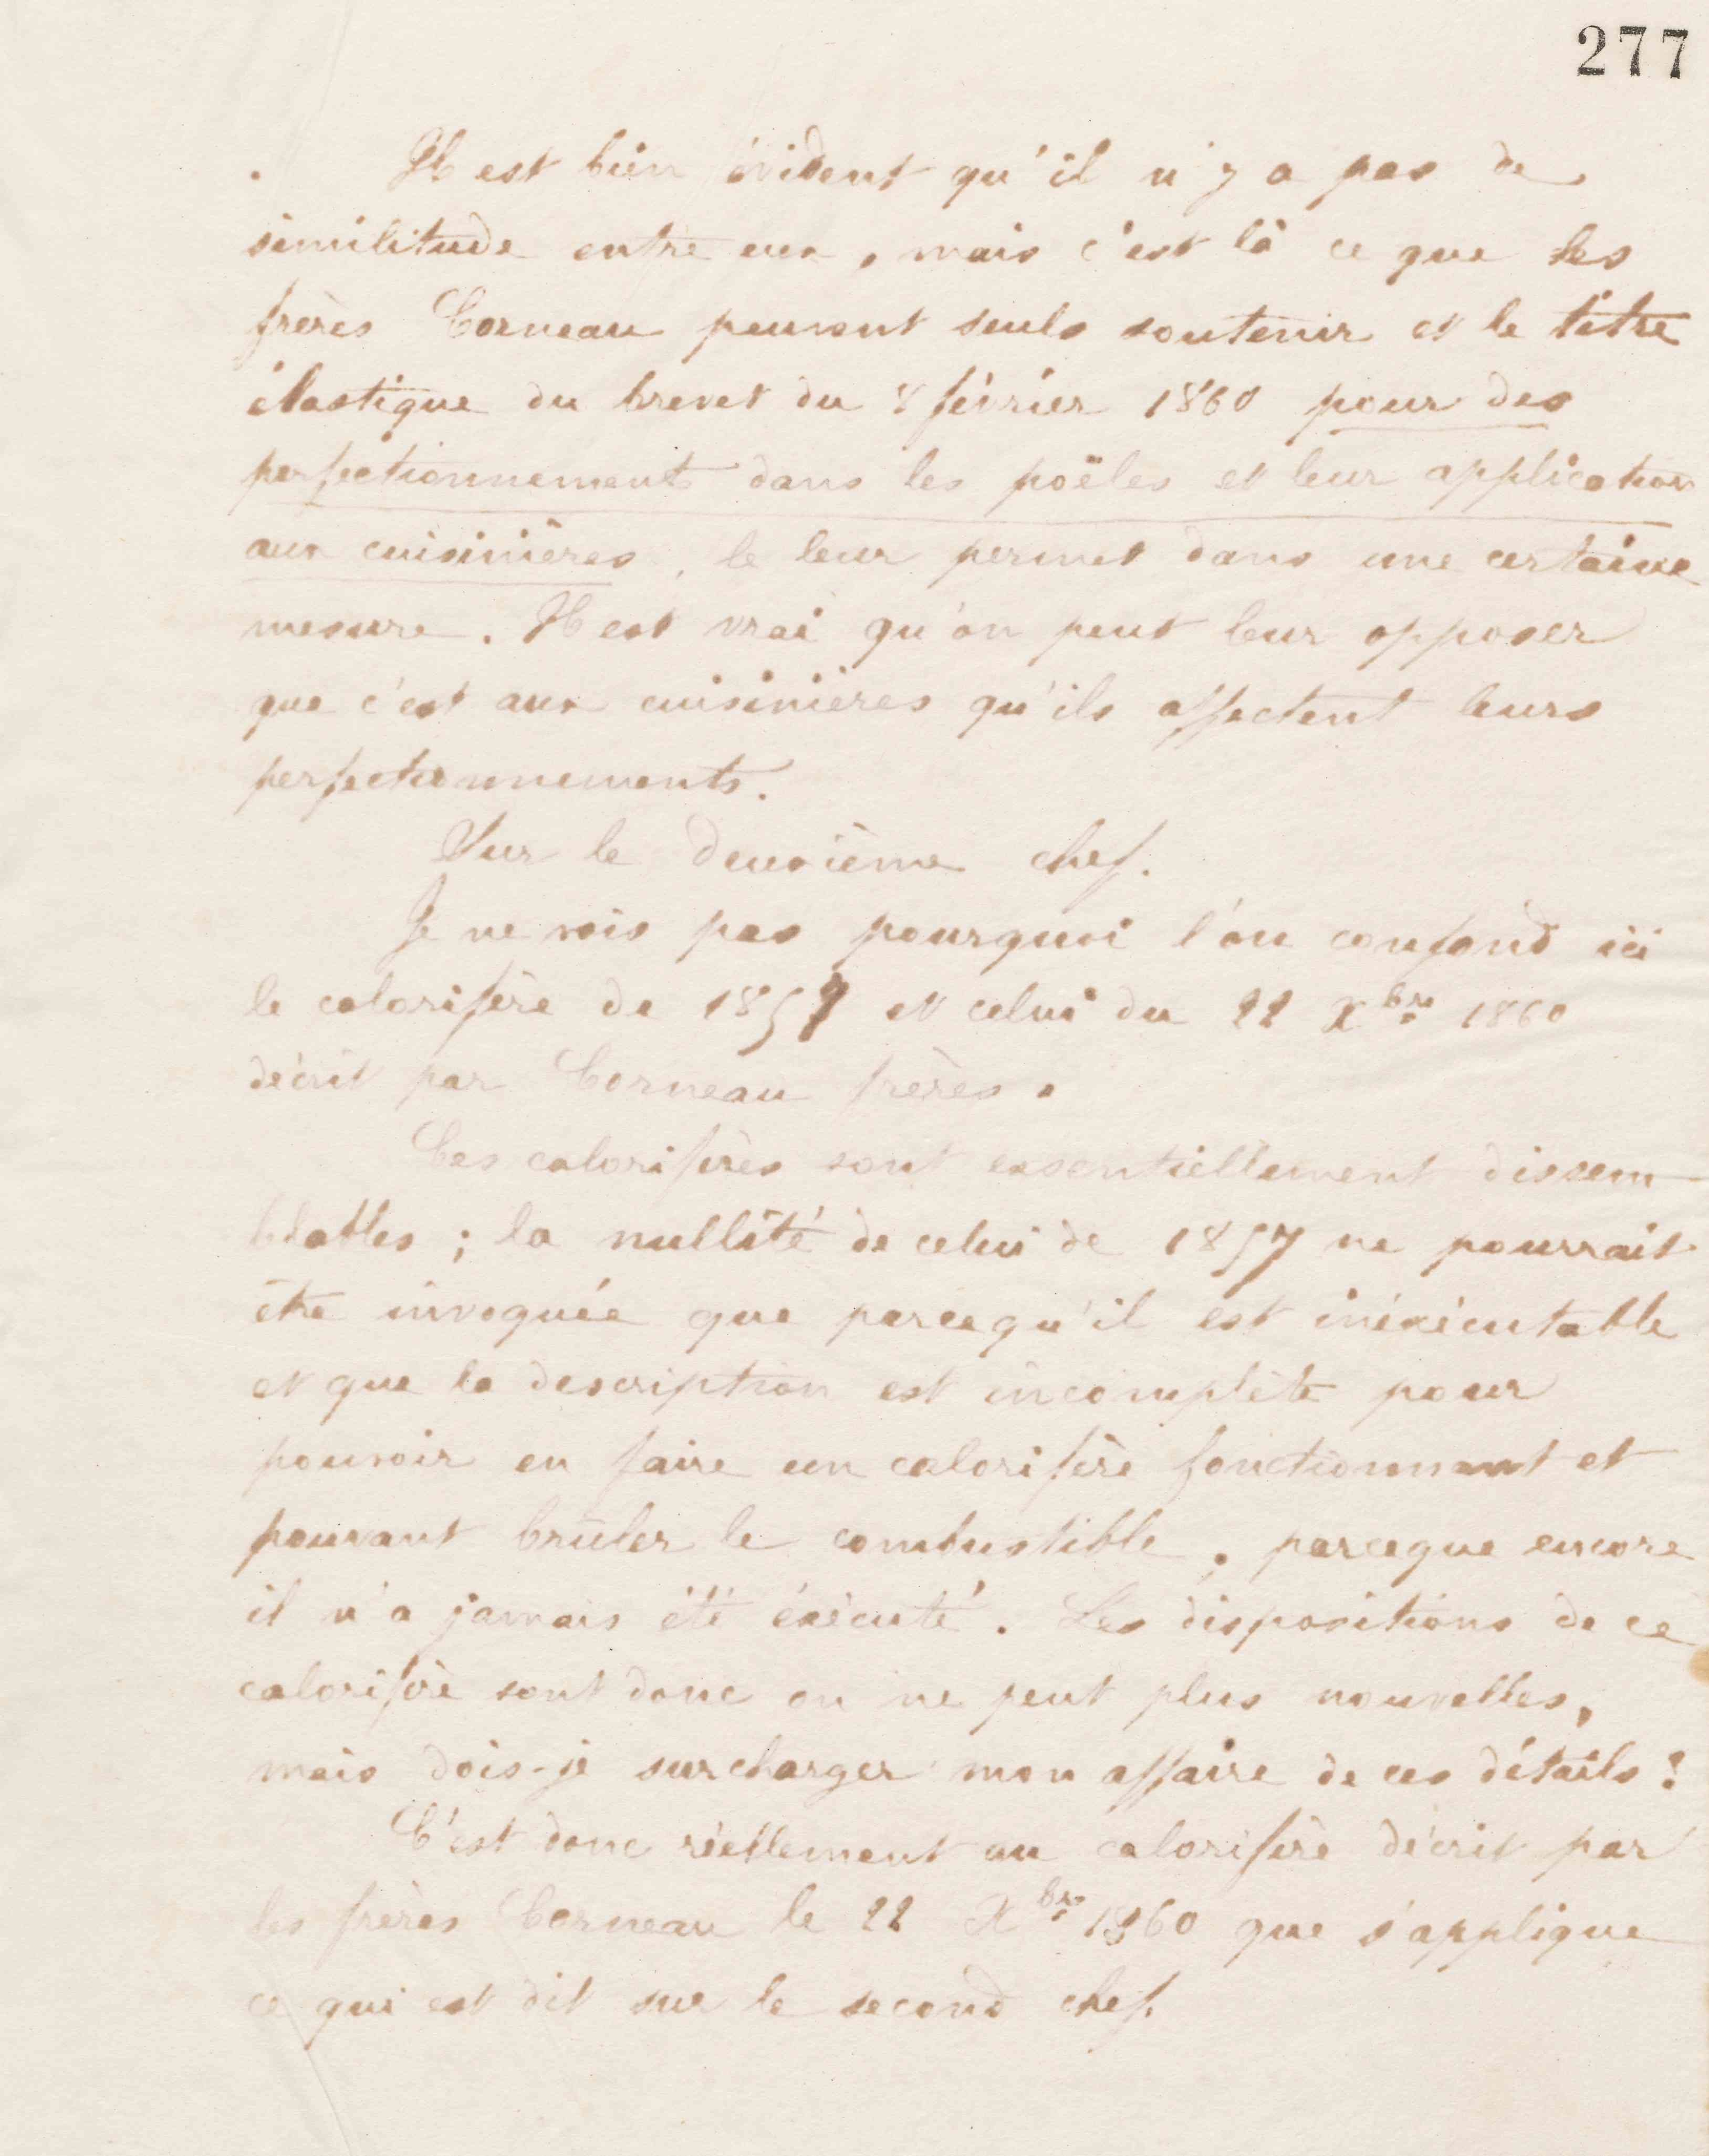 277
Il est bien évident qu'il n'y a pas de
similitude entre eux, mais c'est là ce que les
frères Corneau peuvent seuls soutenir et le titre
élastique du brevet du 8 février 1860 pour des
perfectionnements dans les poëles et leur application
aux cuisinières, le leur permet dans une certaine
mesure. Il est vrai qu'on peut leur opposer
que c'est aux cuisinières qu'ils affectent leurs
perfectionnements.
Sur le deuxième chef.
Je ne vois pas pourquoi l'on confond ici
le calorifère de 1857 et celui du 22 Xbre 1860
décrit par Corneau frères.
Ces calorifères sont essentiellement dissem-
blables ; la nullité de celui de 1857 ne pourrait
être invoquée que parcequ'il est inéxécutable
et que la description est incomplète pour
pouvoir en faire un calorifère fonctionnant et
pouvant brûler le combustible, parceque encore
il n'a jamais été éxécuté. Les dispositions de ce
calorifère sont donc on ne peut plus nouvelles,
mais dois-je surcharger mon affaire de ces détails ?
C'est donc réellement au calorifère décrit par
les frères Corneau le 22 Xbre 1860 que s'applique
ce qui est dit sur le second chef.